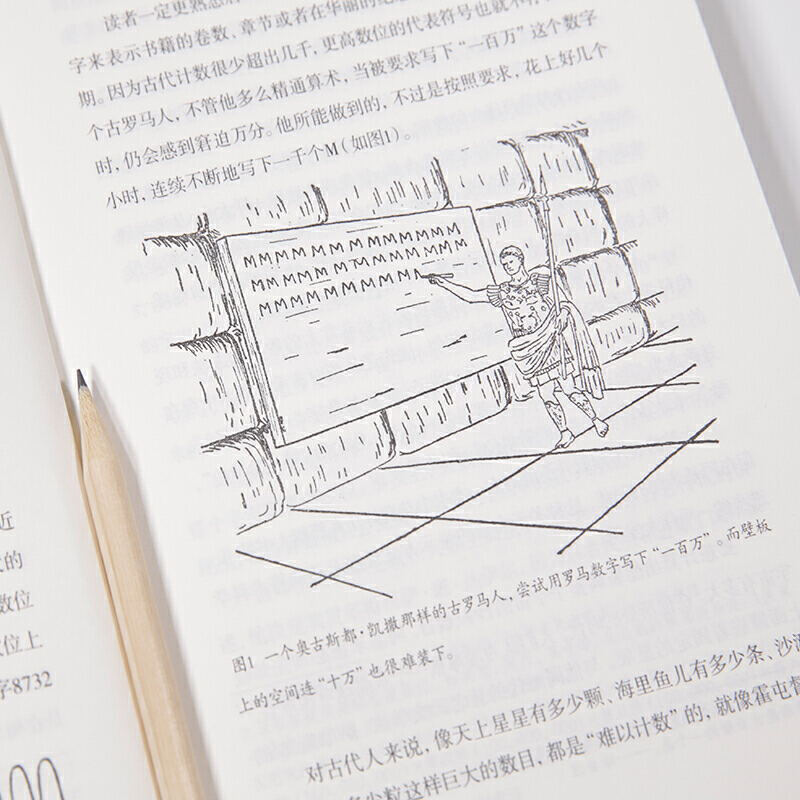 读者一定更熟悉
字来表示书籍的卷数、章节或者在华丽的纪
期。因为古代计数很少超出几千，更高数位的代表符号也就不
个古罗马人，不管他多么精通算术，当被要求写下“一百万”这个数字
时，仍会感到窘迫万分。他所能做到的，不过是按照要求，花上好几个
小时，连续不断地写下一千个M（如图1）。
MMMMMMMMMMMMMMM
MMMMMMMMMMMMMMM
MMMMMMMMMMMM
图1 一个奥古斯都·凯撒那样的古罗马人，尝试用罗马数字写下“一百万”。而壁板
上的空间连“十万”也很难装下。
对古代人来说，像天上星星有多少颗、海里鱼儿有多少条、沙滩
多少粒这样巨大的数目，都是“难以计数”的，就像霍屯督
近
的
数位
位上
字8732
00